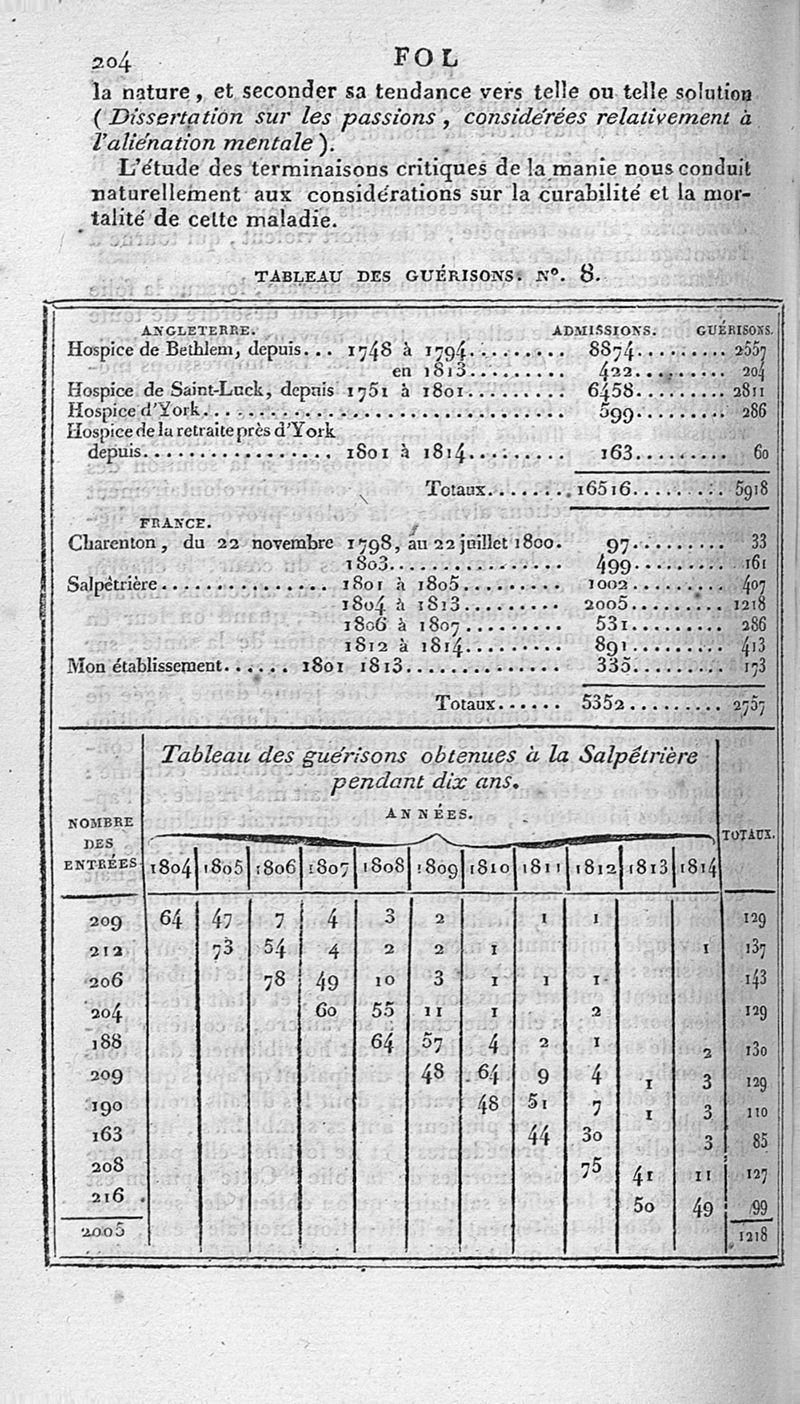 204 FOL
la nature, et seconder sa tendance vers telle ou telle solution
(Dissertation sur les passions, considérées relativement à
l'aliénation mentale).
L'étude des terminaisons critiques de la manie nous conduit
naturellement aux considérations sur la curabilité et la mor-
talité de cette maladie.
TABLEAU DES GUÉRISONS. N°. 8.
ANGLETERRE. ADMISSIONS. GUÉRISONS.
Hospice de Bethlem, depuis... 1748 à 1794......... 8874......... 2557
en 1813......... 422......... 204
Hospice de Saint-Luck, depuis 1751 à 1801......... 6458......... 2811
Hospice d'York......... 599......... 286
Hospice de la retraite près d'York
depuis......... 1801 à 1814......... 163......... 60
Totaux......... 16516......... 5918
FRANCE.
Charenton, du 22 novembre 1798, au 22 juillet 1800. 97......... 33
1803......... 499......... 161
Salpêtrière......... 1801 à 1805......... 1002......... 407
1804 à 1813......... 2005......... 1218
1806 à 1807......... 531......... 286
1812 à 1814......... 891......... 413
Mon établissement...... 1801 1813......... 335......... 173
Totaux...... 5352......... 2757
Tableau des guérisons obtenues à la Salpêtrière
pendant dix ans.
NOMBRE
DES
ENTRÉES
ANNÉES.
TOTAUX.
1804 1805 1806 1807 1808 1809 1810 1811 1812 1813 1814
209 64 47 7 4 3 2 1 1 129
212 73 54 4 2 2 1 1 137
206 78 49 10 3 1 1 1 143
204 60 55 11 1 2 129
188 64 57 4 2 1 2 130
209 48 64 9 4 1 3 129
190 48 51 7 1 3 110
163 44 30 3 85
208 75 41 11 127
216 50 49 99
2005 1218